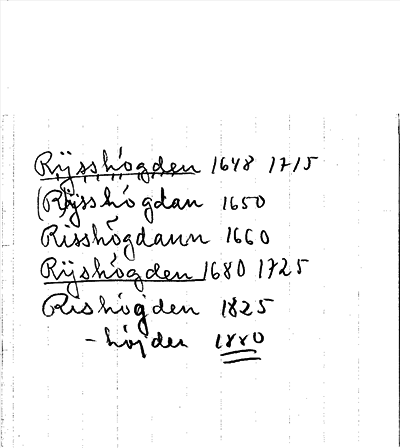 Rÿsshögden 1648 1715
(Rÿsshögdan 1650
Risshögdann 1660
Rÿshögden 1680 1725
Rishögden 1825
- höjden 1880